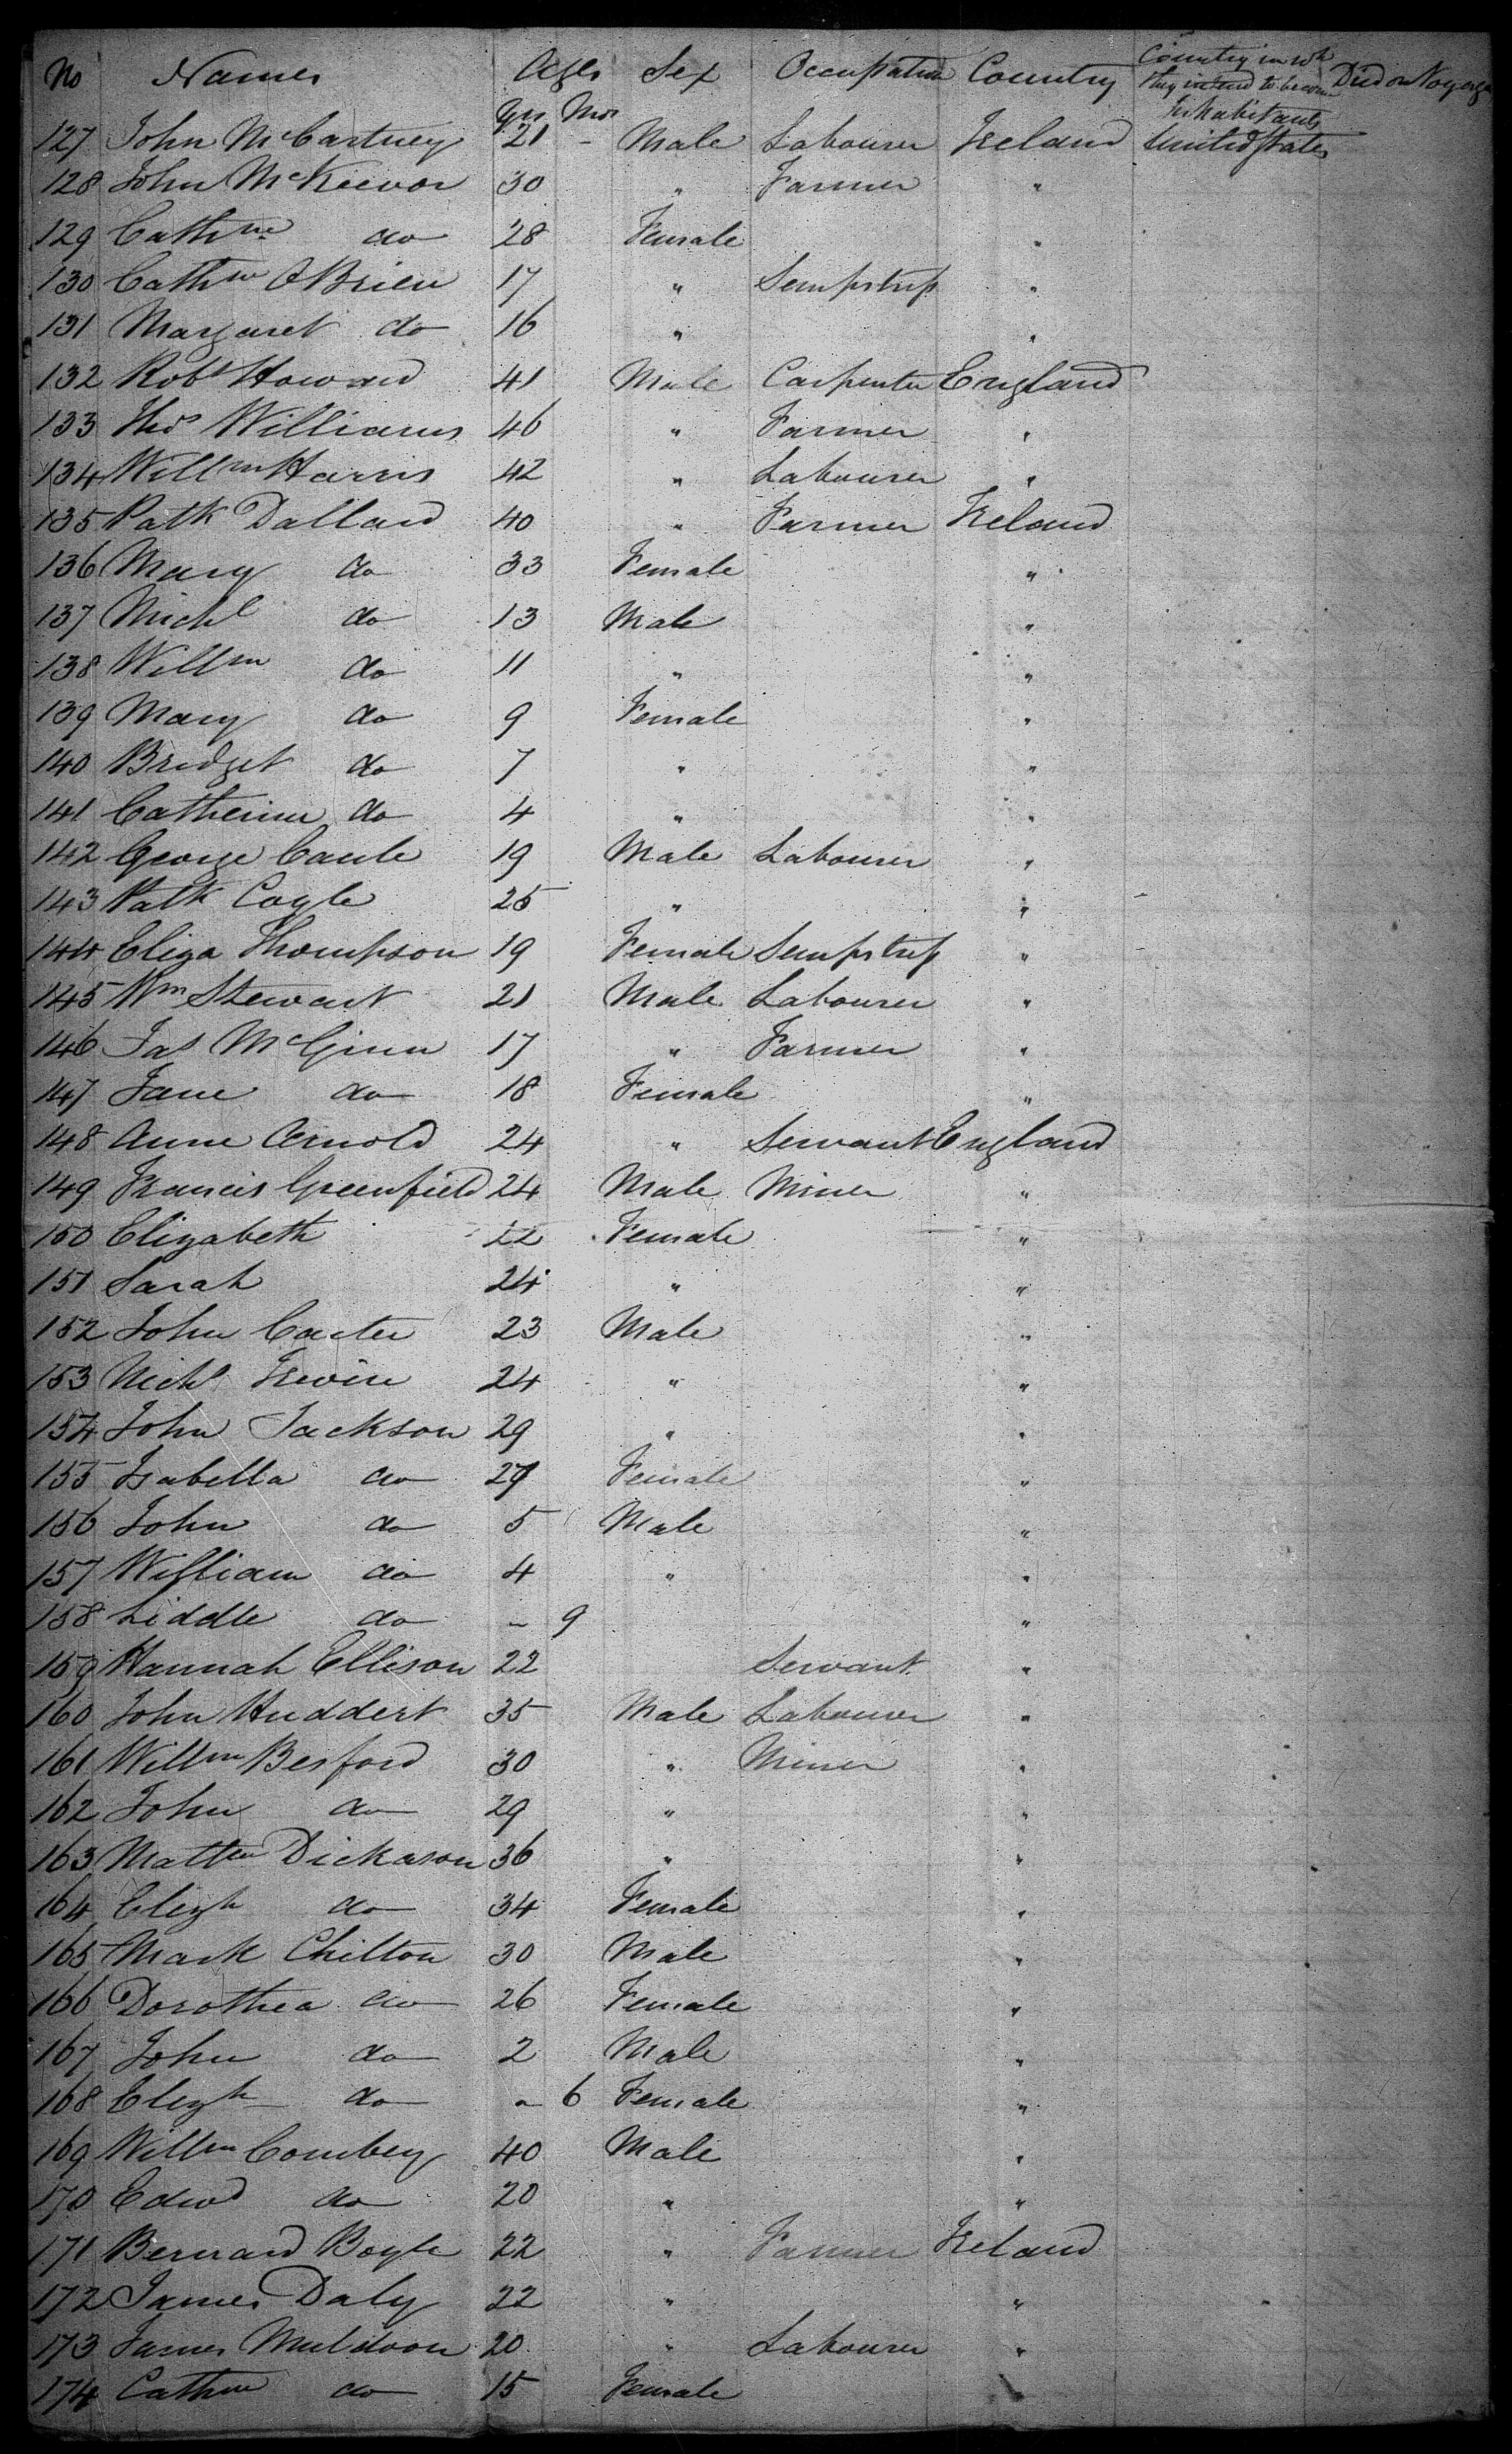 No Names Ages Sex Occupation Country Country in wh they intend to become Inhabitants Died on Voyage
Yrs Mos
127 John McCartney 21 - Male Labourer Ireland United States
128 John McKeevor 30 " Farmer "
129 Cathne do 28 Female "
130 Cathne OBrien 17 " Sempstress "
131 Margaret do 16 " "
132 Robt Howard 41 Male Carpenter England
133 Thos Williams 46 " Farmer "
134 Willm Harris 42 " Labourer "
135 Patk Dallard 40 " Farmer Ireland
136 Mary do 33 Female "
137 Michl do 13 Male "
138 Willm do 11 " "
139 Mary do 9 Female "
140 Bridget do 7 " "
141 Catherine do 4 " "
142 George Caule 19 Male Labourer "
143 Patk Coyle 25 " "
144 Eliza Thompson 19 Female Sempstress "
145 Wm Stewart 21 Male Labourer "
146 Jas McGinn 17 " Farmer "
147 Jane do 18 Female "
148 Anne Arnold 24 " Servant England
149 Francis Greenfield 24 Male Miner "
150 Elizabeth 22 Female "
151 Sarah 24 " "
152 John Carter 23 Male "
153 Nichs Irvine 24 " "
154 John Jackson 29 " "
155 Isabella do 27 Female "
156 John do 5 Male "
157 William do 4 " "
158 Liddle do - 9 "
159 Hannah Ellison 22 Servant "
160 John Huddert 35 Male Labourer "
161 Willm Besford 30 " Miner "
162 John do 29 " "
163 Mattw Dickason 36 " "
164 Elizh do 34 Female "
165 Mark Chilton 30 Male "
166 Dorothea do 26 Female "
167 John do 2 Male "
168 Elizh do - 6 Female "
169 Willm Combey 40 Male "
170 Edwd do 20 " "
171 Bernard Boyle 22 " Farmer Ireland
172 James Daly 22 " "
173 James Muldoon 20 " Labourer "
174 Cathne do 15 Female "